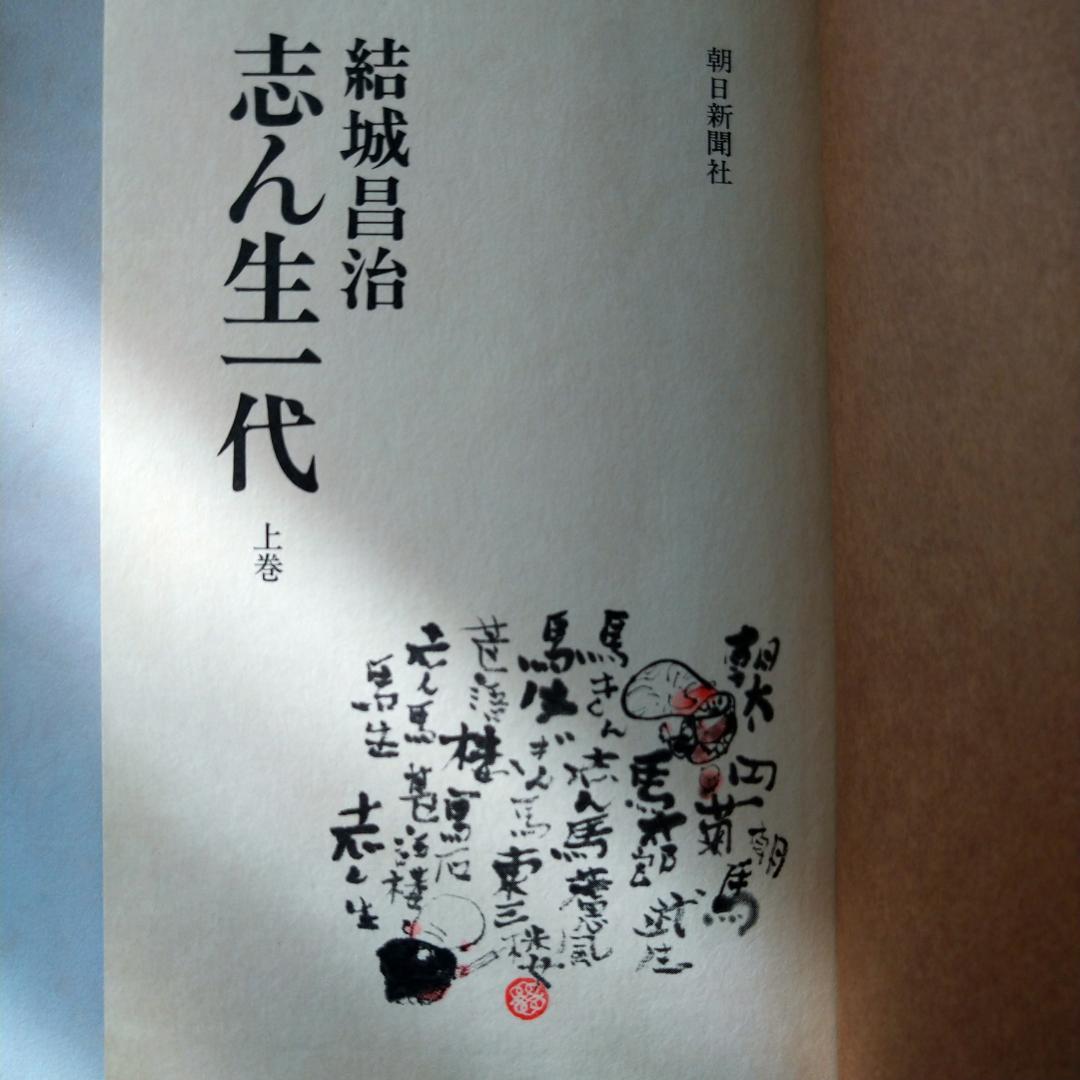 朝日新聞社
結城昌治
志ん生一代
上巻
朝太
円菊
朝馬
馬太郎
武生
馬きん
志ん馬
馬生
ぎん馬
東三楼
志ん馬
馬生
志ん生